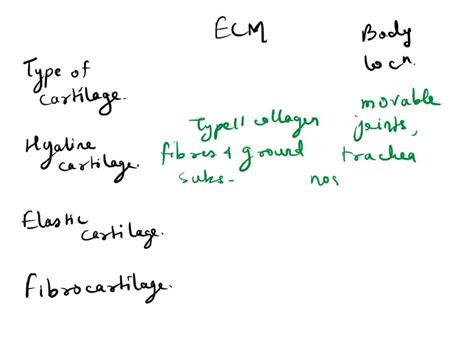 ECM
Body
locn.
Type of
cartilage.
Hyaline
cartilage.
Type II collagen
fibres & ground
subs-
movable
joints,
trachea
nos
Elastic
cartilage.
Fibrocartilage.